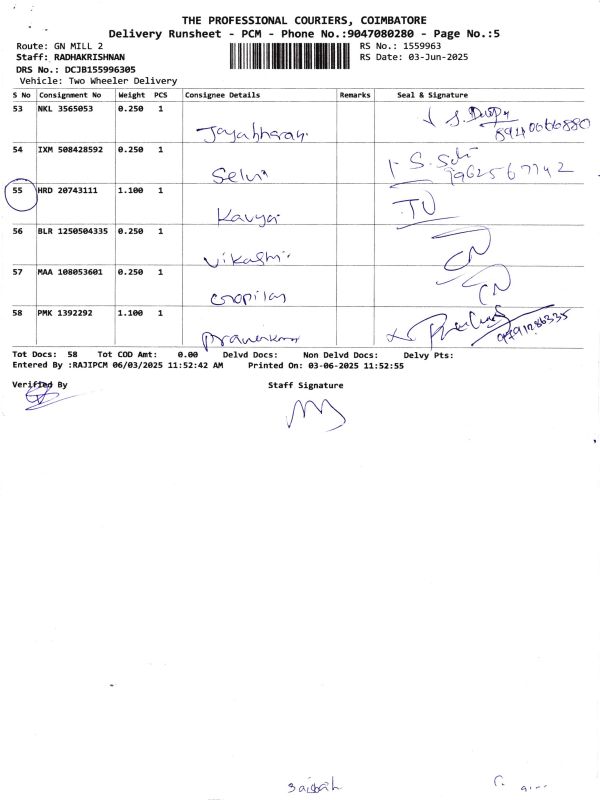 THE PROFESSIONAL COURIERS, COIMBATORE
Delivery Runsheet - PCM - Phone No.:9047080280 - Page No.:5
Route: GN MILL 2
RS No.: 1559963
Staff: RADHAKRISHNAN
RS Date: 03-Jun-2025
DRS No.: DCJB155996305
Vehicle: Two Wheeler Delivery
S No Consignment No Weight PCS Consignee Details Remarks Seal & Signature
53 NKL 3565053 0.250 1
54 IXM 508428592 0.250 1
Selvi
55 HRD 20743111 1.100 1
Kavya
56 BLR 1250504335 0.250 1
57 MAA 108053601 0.250 1
CN
58 PMK 1392292 1.100 1
9791286335
Tot Docs: 58 Tot COD Amt: 0.00 Delvd Docs: Non Delvd Docs: Delvy Pts:
Entered By :RAJIPCM 06/03/2025 11:52:42 AM Printed On: 03-06-2025 11:52:55
Verified By
Staff Signature